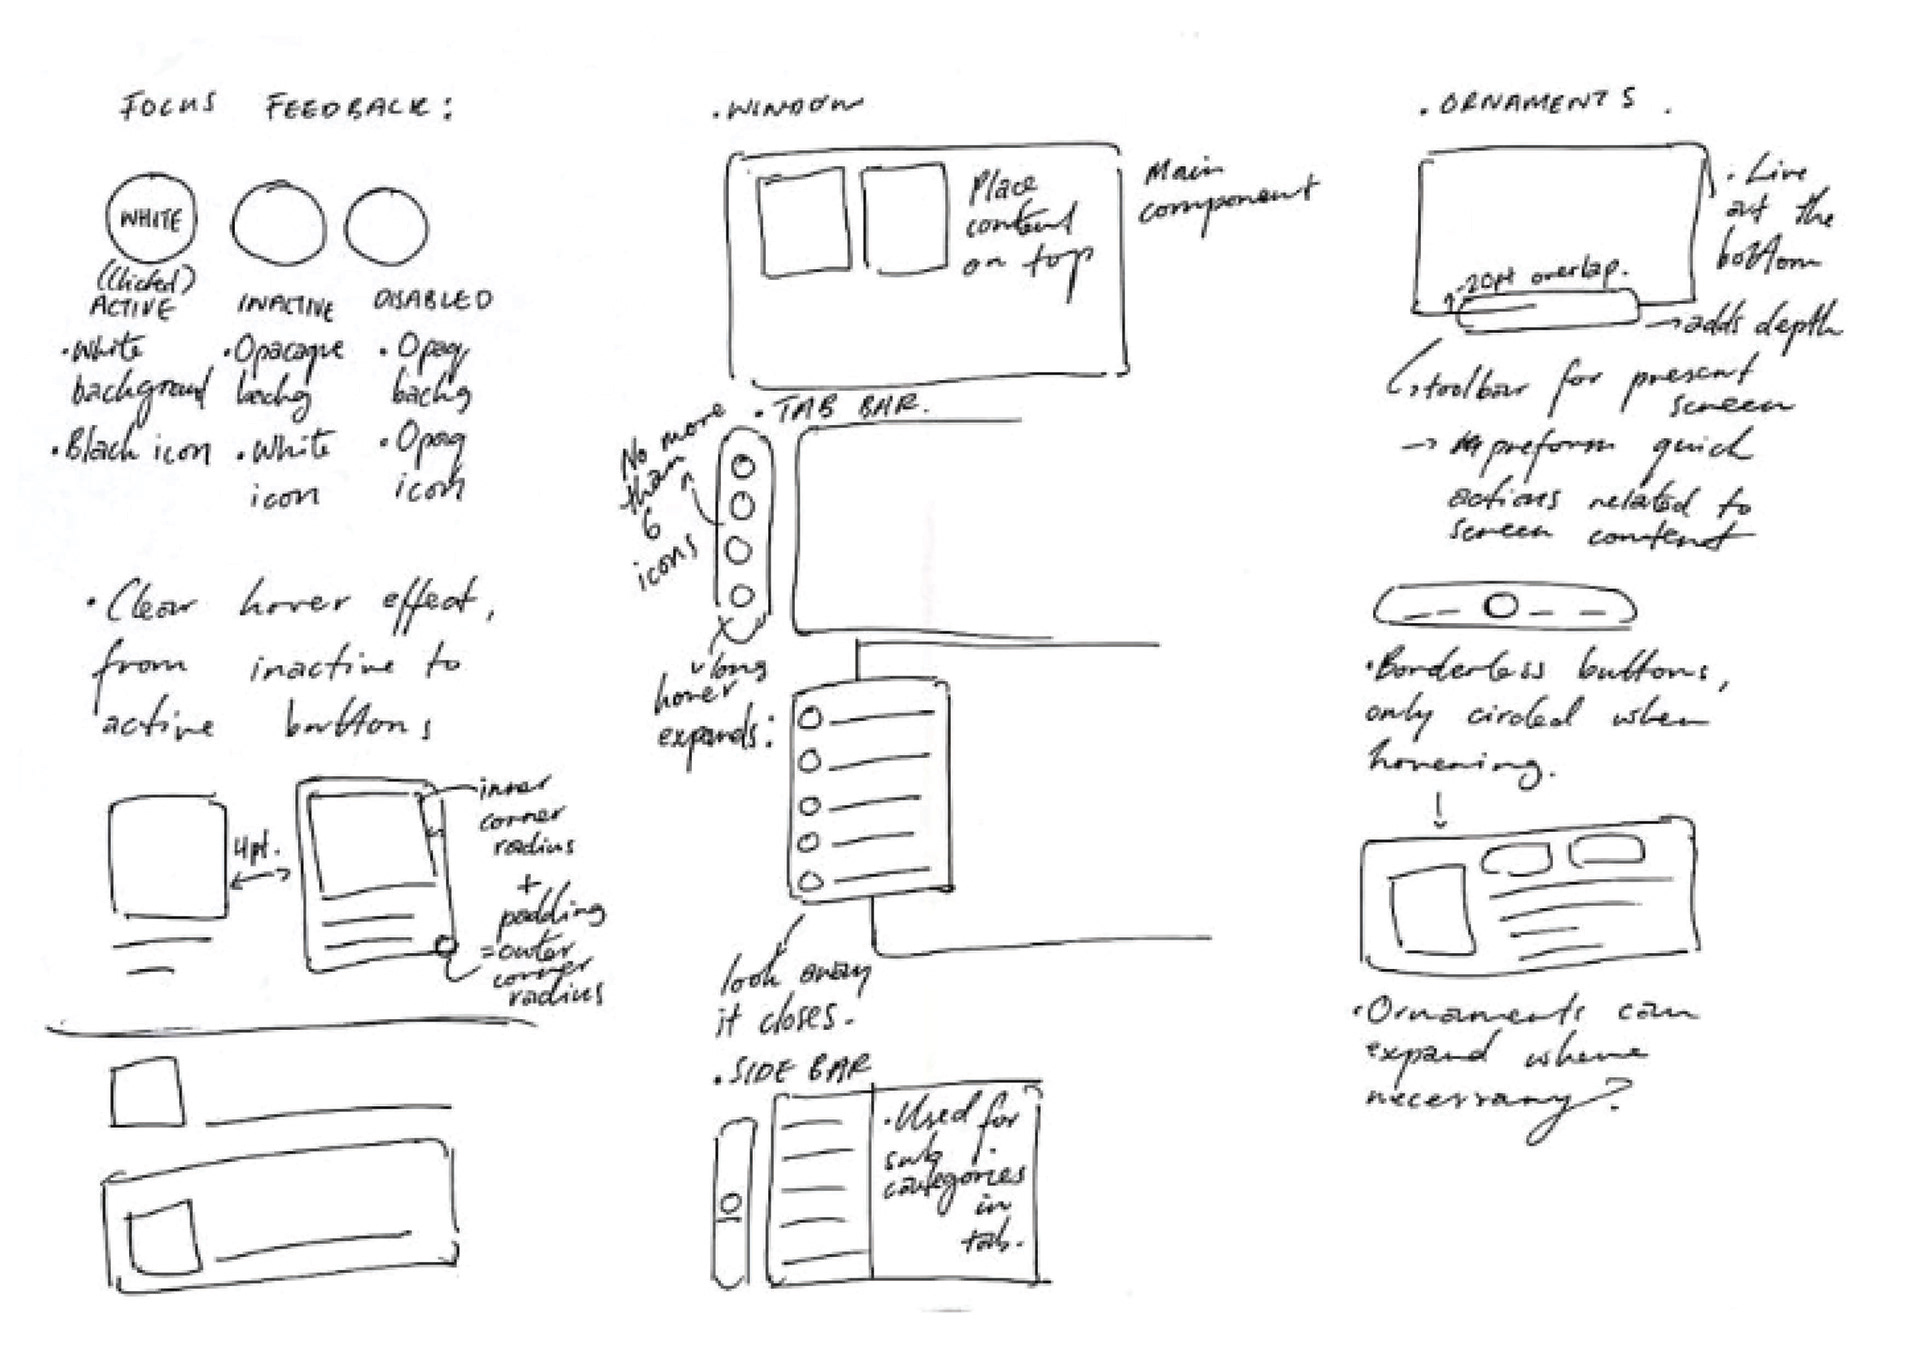 FOCUS FEEDBACK:
WHITE
(Clicked)
ACTIVE
• White
background
• Black icon
INACTIVE
• Opacaque
backg
• White
icon
DISABLED
• Opaq
backg
• Opaq
icon
• Clear hover effect,
from inactive to
active buttons
4pt.
inner
corner
radius
+
padding
= outer
corner
radius
• WINDOW
Place
content
on top
Main
component
• TAB BAR.
No more
than
6
icons
long
hover
expands:
look away
it closes.
• SIDE BAR
• Used for
sub
categories
in
tab.
• ORNAMENTS.
• Live
at the
bottom
20pt overlap.
→ adds depth
↳ toolbar for present
screen
→ preform quick
actions related to
screen content
• Borderless buttons,
only circled when
hovering.
• Ornaments can
expand where
necessary?